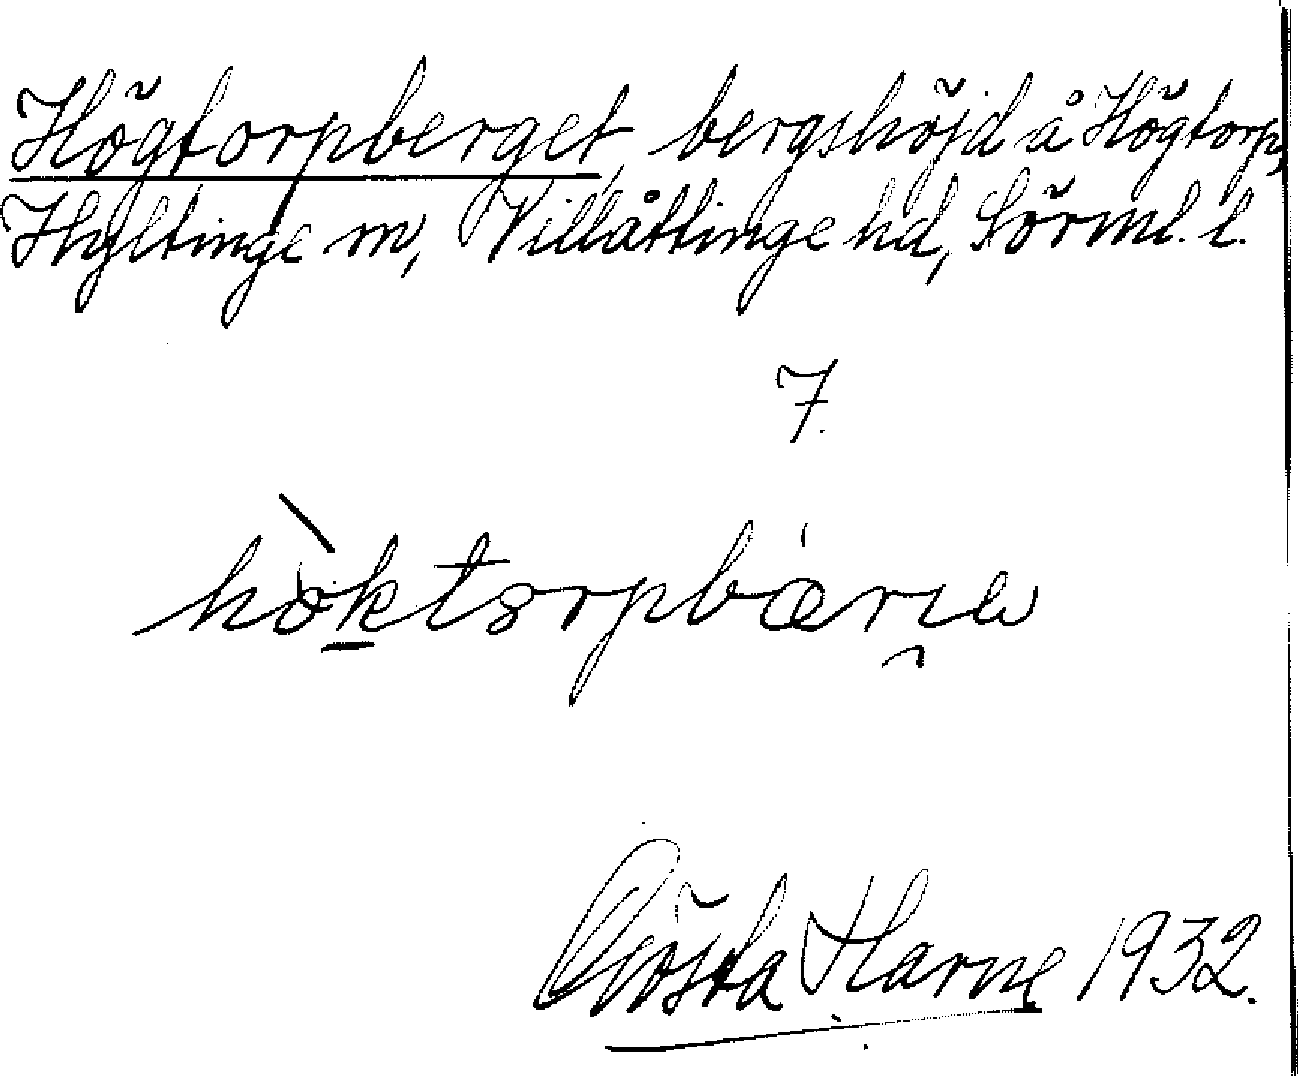 Högtorpberget, bergshöjd å Högtorp,
Hyltinge sn, Villåttinge hd, Sörml. l.
7.
hòktorpbærıe
Gösta Harne 1932.